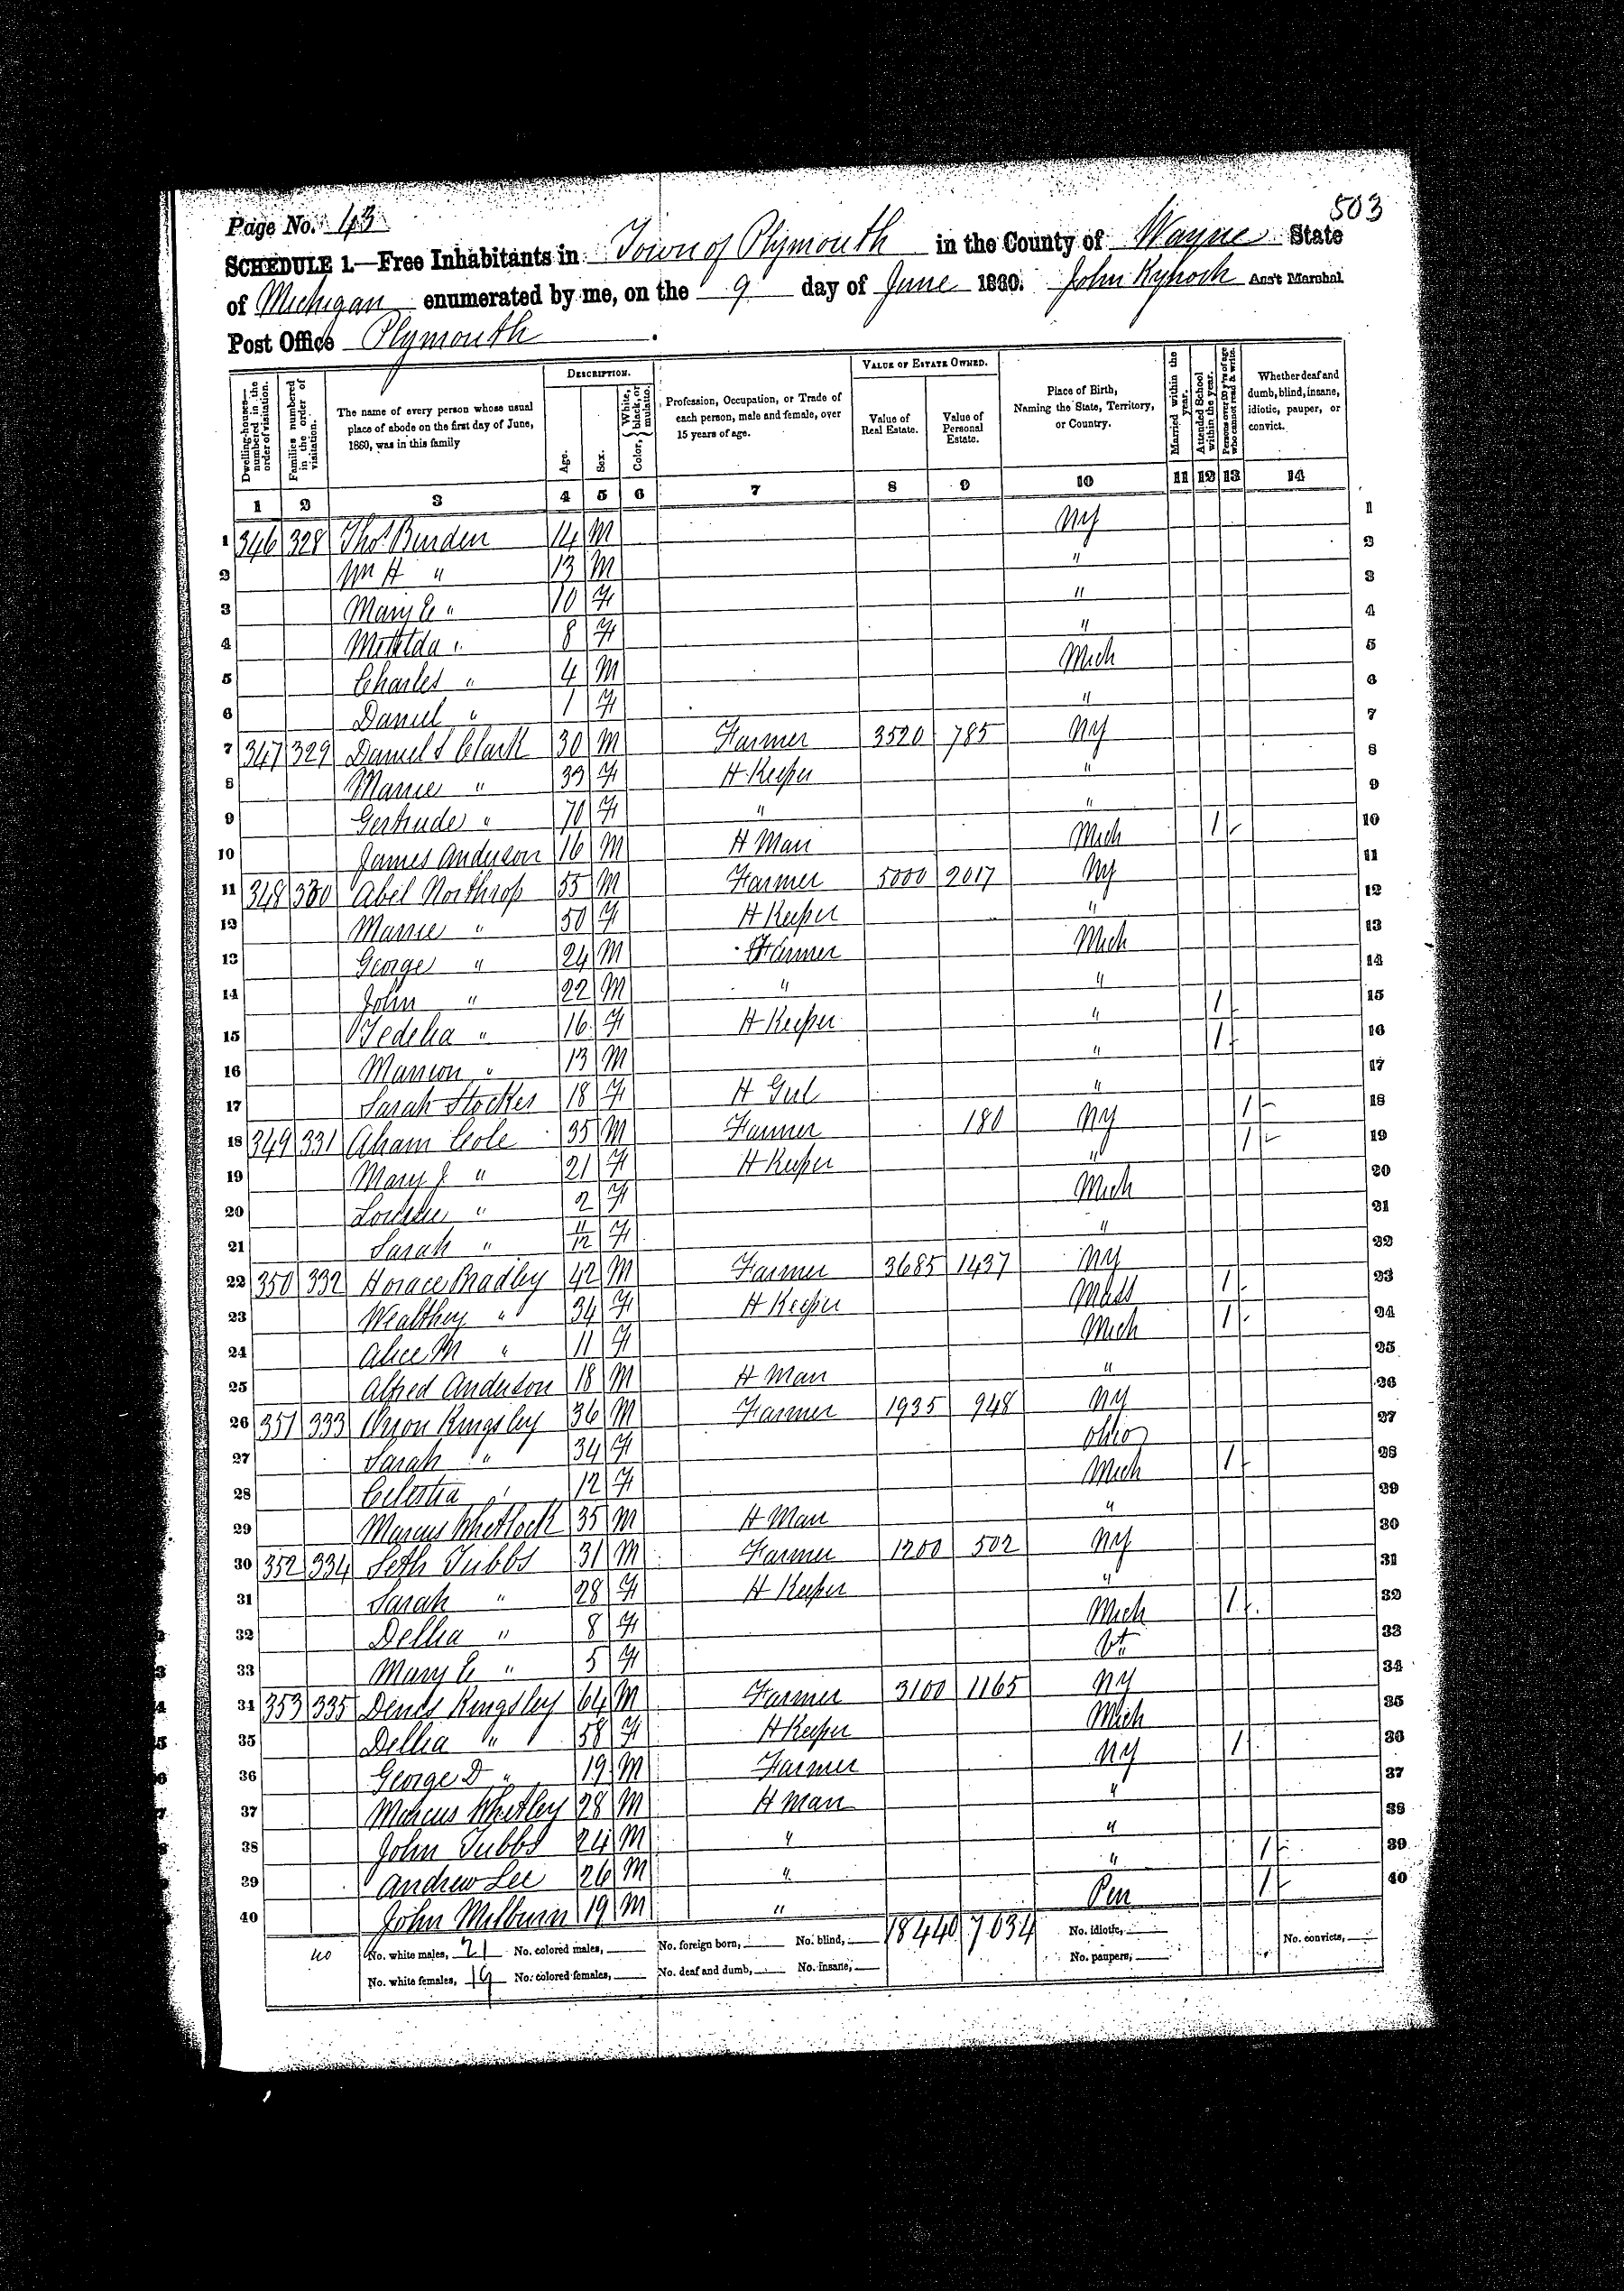 503
Page No. 43
SCHEDULE 1.—Free Inhabitants in Town of Plymouth in the County of Wayne State
of Michigan enumerated by me, on the 9 day of June 1860. John Kynoch Ass't Marshal
Post Office Plymouth.
Dwelling-houses—numbered in the order of visitation.
Families numbered in the order of visitation.
The name of every person whose usual place of abode on the first day of June, 1860, was in this family
DESCRIPTION.
Age.
Sex.
Color, { White, black, or mulatto.
Profession, Occupation, or Trade of each person, male and female, over 15 years of age.
VALUE OF ESTATE OWNED.
Value of Real Estate.
Value of Personal Estate.
Place of Birth, Naming the State, Territory, or Country.
Married within the year.
Attended School within the year.
Persons over 20 y'rs of age who cannot read & write.
Whether deaf and dumb, blind, insane, idiotic, pauper, or convict.
1 2 3 4 5 6 7 8 9 10 11 12 13 14
1 346 328 Thos Burden 14 M NY 1
2 Wm H " 13 M " 2
3 Mary E " 10 F " 3
4 Matilda " 8 F " 4
5 Charles " 4 M Mich 5
6 Daniel " 1 F " 6
7 347 329 Daniel S Clark 30 M Farmer 3520 785 NY 7
8 " 33 F H Keeper " 8
9 Gertrude " 70 F " " 9
10 James Anderson 16 M H Man Mich 1 10
11 348 330 Abel Northrop 55 M Farmer 5000 2017 NY 11
12 " 50 F H Keeper " 12
13 George " 24 M Farmer Mich 13
14 John " 22 M " " 14
15 Fedelia " 16 F H Keeper " 1 15
16 " 13 M " 1 16
17 Sarah Stockes 18 F H Gul " 17
18 349 331 Cole 35 M Farmer 180 NY 1 18
19 Mary J " 21 F H Keeper " 1 19
20 " 2 F Mich 20
21 Sarah " 11/12 F " 21
22 350 332 Horace Bradley 42 M Farmer 3685 1437 NY 22
23 Wealthey " 34 F H Keeper Mass 1 23
24 Alice M " 11 F Mich 1 24
25 Alfred Anderson 18 M H Man " 25
26 351 333 Kingsley 36 M Farmer 1935 948 NY 26
27 Sarah " 34 F Ohio 27
28 Celestia " 12 F Mich 1 28
29 Marcus Whetlock 35 M H Man " 29
30 352 334 Seth Tubbs 31 M Farmer 1200 502 NY 30
31 Sarah " 28 F H Keeper " 31
32 Dellia " 8 F Mich 1 32
33 Mary E " 5 F Vt 33
34 353 335 Kingsley 64 M Farmer 3100 1165 NY 34
35 Dellia " 58 F H Keeper Mich 35
36 George D " 19 M Farmer NY 1 36
37 Marcus Whetley 28 M H Man " 37
38 John Tubbs 24 M " " 38
39 Andrew Lee 26 M " " 1 39
40 John Milburn 19 M " Pen 1 40
40 No. white males, 21 No. colored males, No. foreign born, No. blind, 18440 7034 No. idiotic, No. convicts,
No. white females, 19 No. colored females, No. deaf and dumb, No. insane, No. paupers,